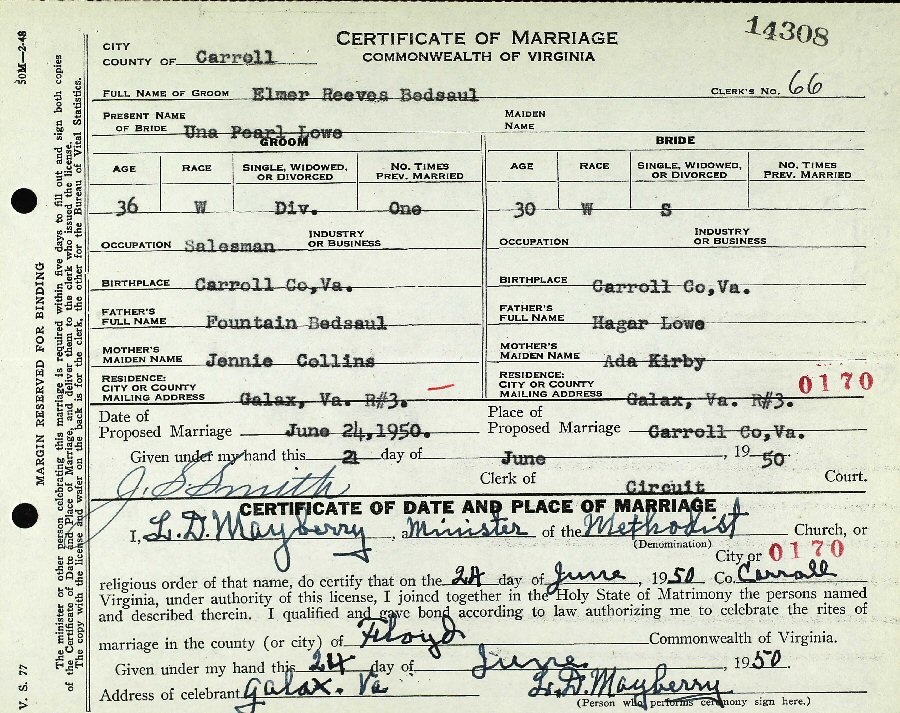 14308
CERTIFICATE OF MARRIAGE
COMMONWEALTH OF VIRGINIA
CITY
COUNTY OF Carroll
FULL NAME OF GROOM Elmer Reeves Bedsaul CLERK'S NO. 66
PRESENT NAME OF BRIDE Una Pearl Lowe MAIDEN NAME
GROOM BRIDE
AGE RACE SINGLE, WIDOWED, OR DIVORCED NO. TIMES PREV. MARRIED AGE RACE SINGLE, WIDOWED, OR DIVORCED NO. TIMES PREV. MARRIED
36 W Div. One 30 W S
OCCUPATION Salesman INDUSTRY OR BUSINESS OCCUPATION INDUSTRY OR BUSINESS
BIRTHPLACE Carroll Co,Va. BIRTHPLACE Carroll Co,Va.
FATHER'S FULL NAME Fountain Bedsaul FATHER'S FULL NAME Hagar Lowe
MOTHER'S MAIDEN NAME Jennie Collins MOTHER'S MAIDEN NAME Ada Kirby
RESIDENCE: CITY OR COUNTY MAILING ADDRESS Galax, Va. R#3. RESIDENCE: CITY OR COUNTY MAILING ADDRESS Galax, Va. R#3.
0170
Date of Proposed Marriage June 24,1950. Place of Proposed Marriage Carroll Co,Va.
Given under my hand this 21 day of June, 1950
J. S Smith Clerk of Circuit Court.
CERTIFICATE OF DATE AND PLACE OF MARRIAGE
I, L. D. Mayberry, a Minister of the Methodist Church, or
(Denomination)
0170
religious order of that name, do certify that on the 24 day of June, 1950 City or Co. Carroll
Virginia, under authority of this license, I joined together in the Holy State of Matrimony the persons named
and described therein. I qualified and gave bond according to law authorizing me to celebrate the rites of
marriage in the county (or city) of Floyd Commonwealth of Virginia.
Given under my hand this 24 day of June. 1950.
Address of celebrant Galax. Va L. D. Mayberry
(Person who performs ceremony sign here.)
50M—2-48
MARGIN RESERVED FOR BINDING
V. S. 77
The minister or other person celebrating this marriage is required within five days to fill out and sign both copies
of the Certificate of Date and Place of Marriage, and deliver them to the clerk who issued the license.
The copy with the license and wafer on the back is for the clerk, the other for the Bureau of Vital Statistics.